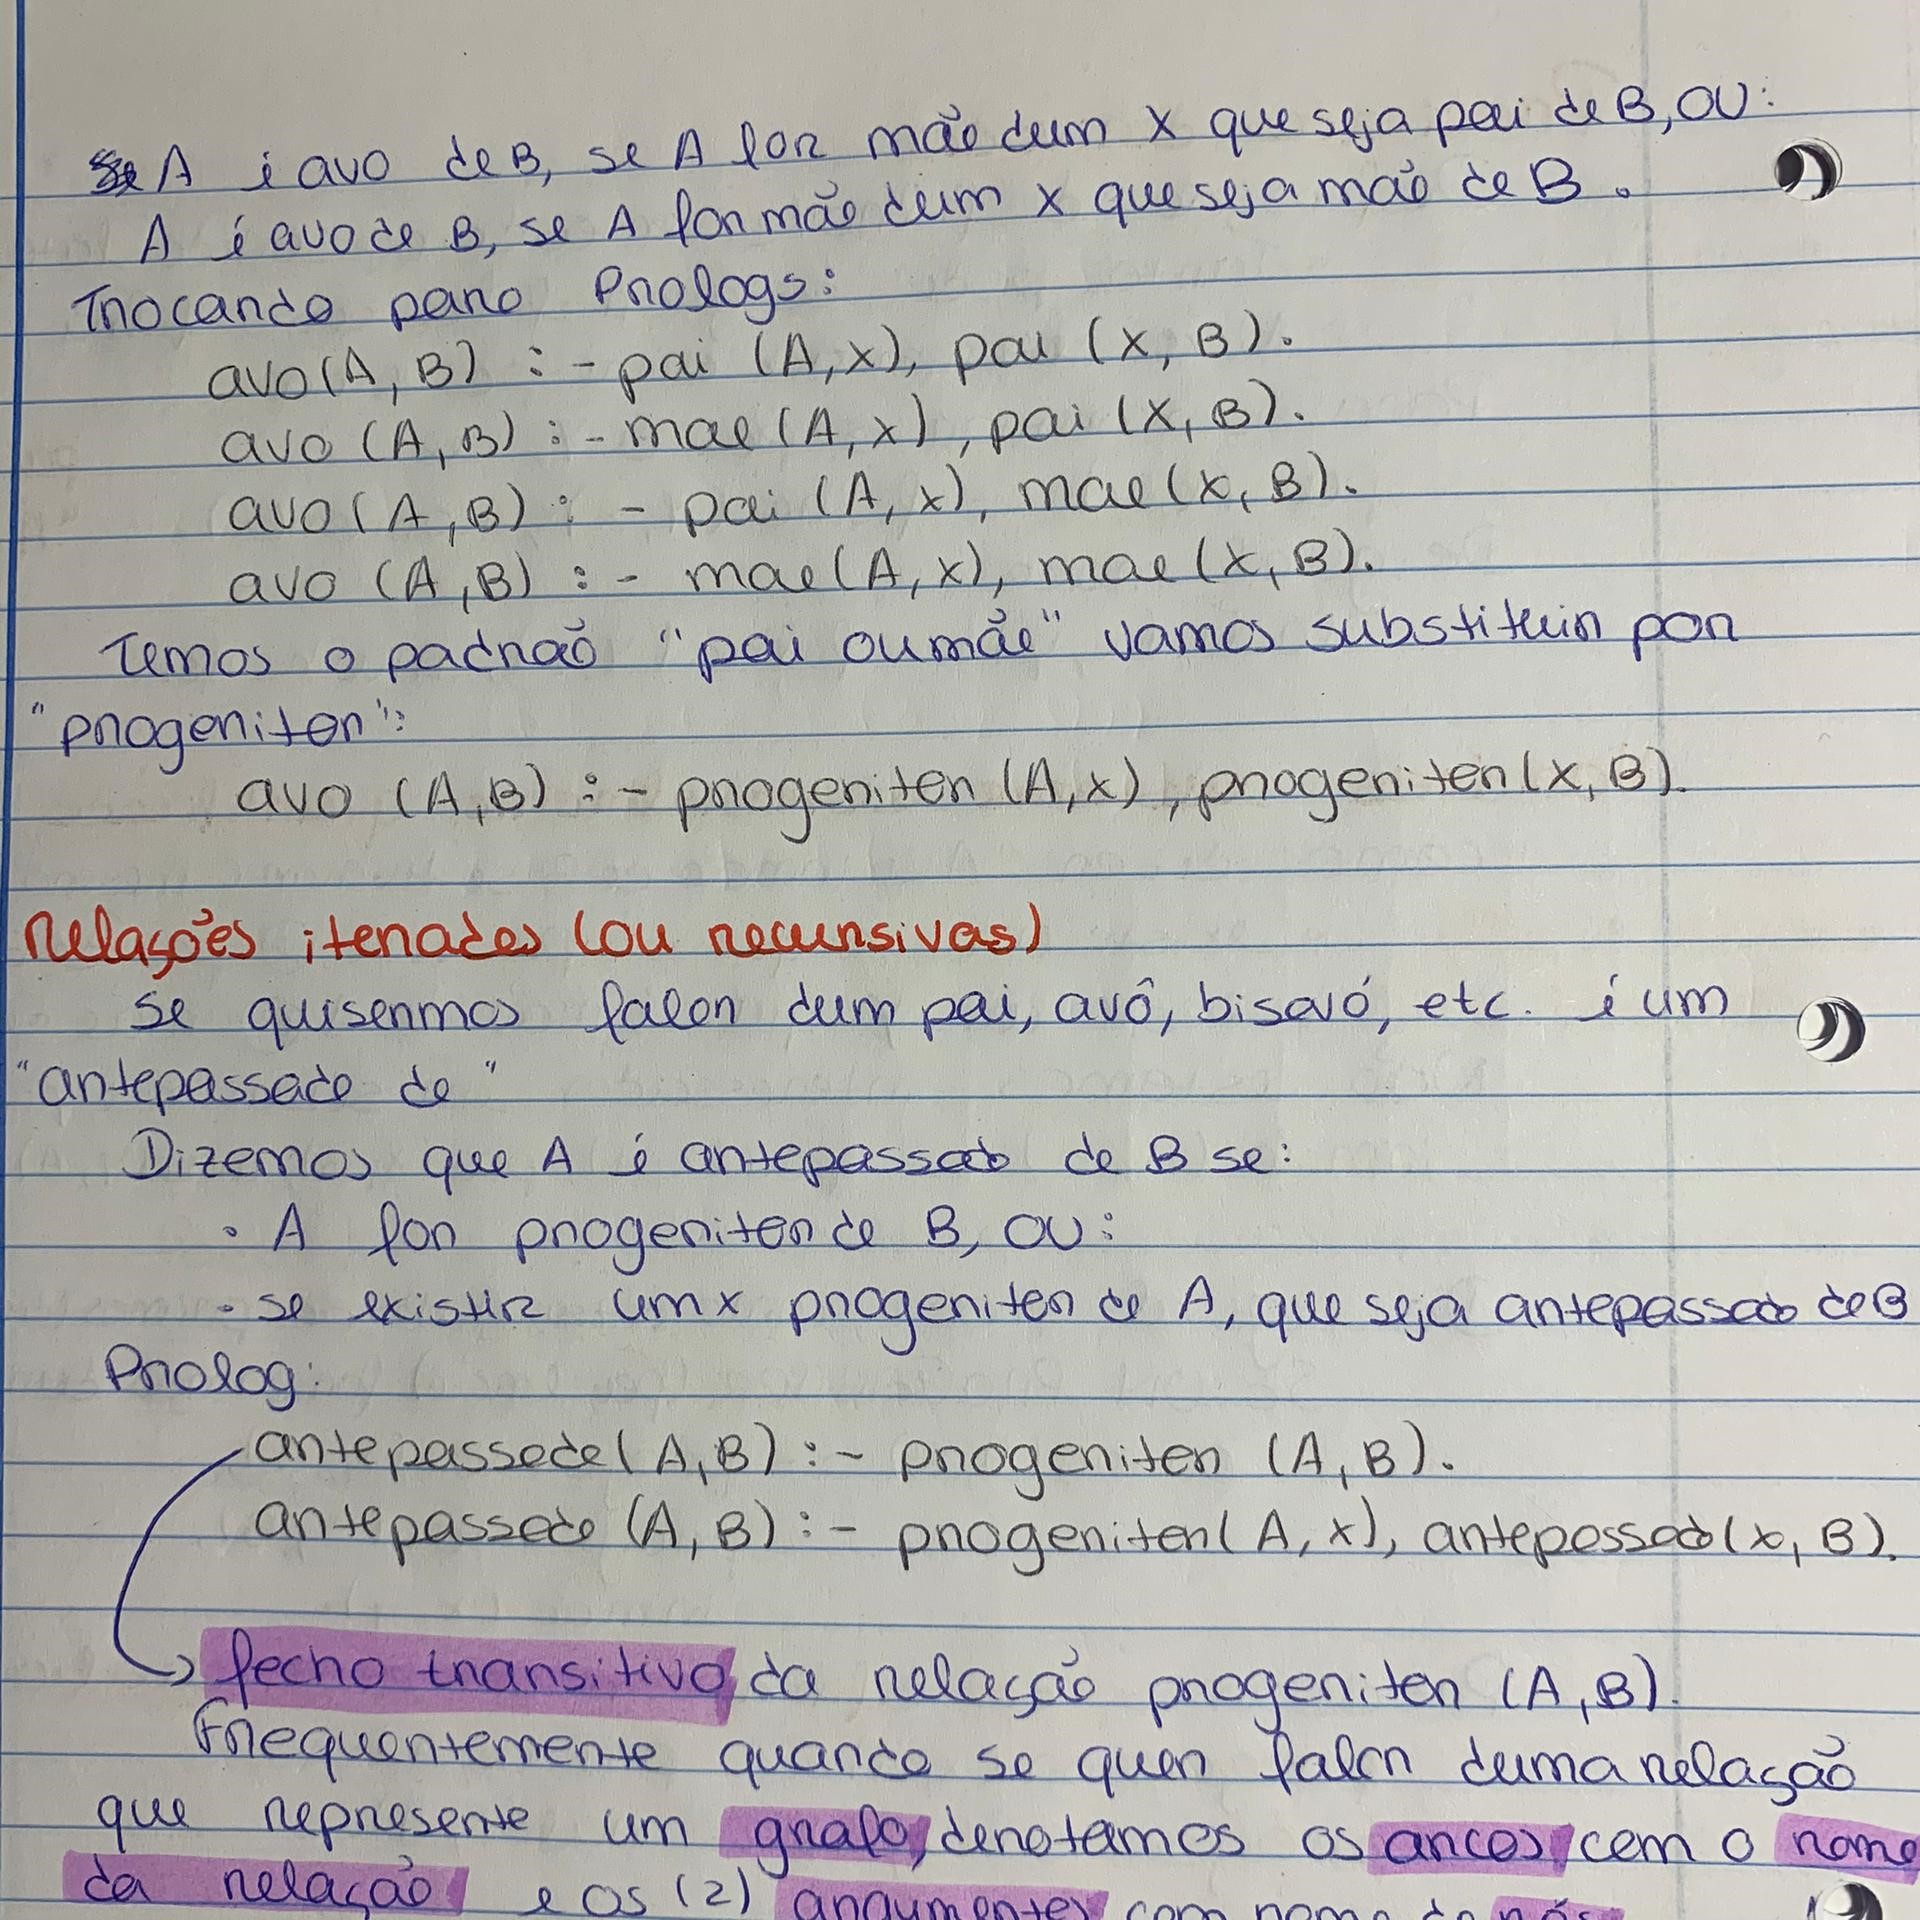 A é avo de B, se A for mão dum X que seja pai de B, OU:
A é avo de B, se A for mão dum x que seja mão de B.
Trocando para Prologs:
avo(A, B) :- pai (A, x), pai (x, B).
avo (A, B) :- mae (A, x), pai (X, B).
avo (A, B) :- pai (A, x), mae (x, B).
avo (A, B) :- mae (A, x), mae (x, B).
Temos o padrão "pai ou mãe" vamos substituir por
"progenitor":
avo (A, B) :- progenitor (A, x), progenitor (x, B).
Relações iteradas (ou recursivas)
Se quisermos falar dum pai, avô, bisavó, etc. é um
"antepassado de"
Dizemos que A é antepassado de B se:
• A for progenitor de B, OU:
• se existir um x progenitor de A, que seja antepassado de B
Prolog:
antepassado (A, B) :- progenitor (A, B).
antepassado (A, B) :- progenitor (A, x), antepassado (x, B).
fecho transitivo da relação progenitor (A, B).
Frequentemente quando se quer falar duma relação
que represente um grafo, denotamos os arcos com o nome
da relação e os (2) argumentos com nome de nós